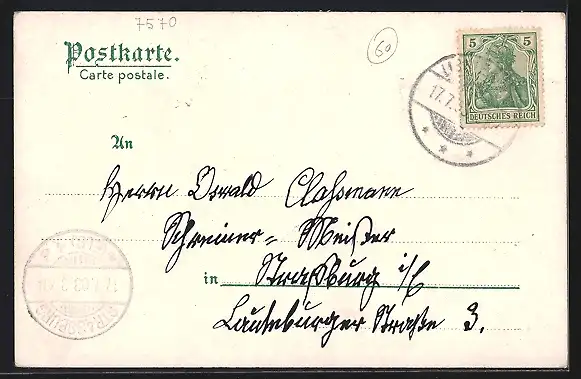 7570
60
Postkarte.
Carte postale.
5 5
DEUTSCHES REICH
17.7.
An
Herrn Oswald Claßmann
Schreiner= Meister
in Straßburg i/E
Lauteburger Straße 3.
STRASSBURG
17.7.03.3